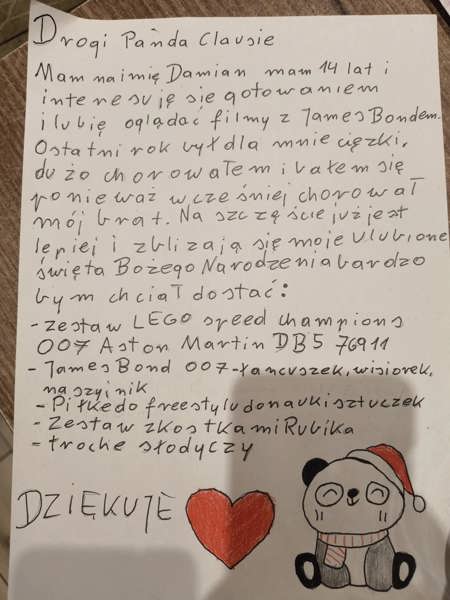 Drogi Panda Clausie
Mam na imię Damian mam 14 lat i
interesuję się gotowaniem
i lubię oglądać filmy z James Bondem.
Ostatni rok był dla mnie cięzki,
dużo chorowałem i bałem się
ponieważ wcześniej chorował
mój brat. Na szczęście już jest
lepiej i zbliżają się moje ulubione
święta Bożego Narodzenia bardzo
bym chciał dostać:
- zestaw LEGO speed champions
007 Aston Martin DB5 76911
- James Bond 007 - łancuszek, wisiorek,
naszyjnik
- Piłkę do freestylu do nauki sztuczek
- Zestaw z kostkami Rubika
- troche słodyczy
DZIĘKUJĘ